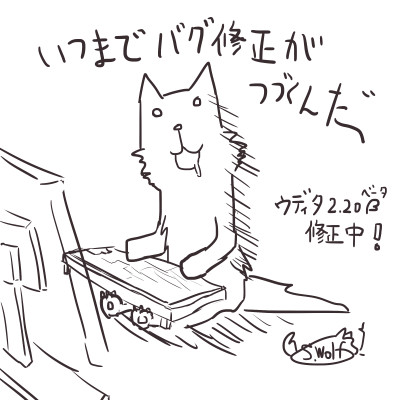 いつまでバグ修正が
つづくんだ〜
ウディタ2.20β
ベータ
修正中！
S.Wolf